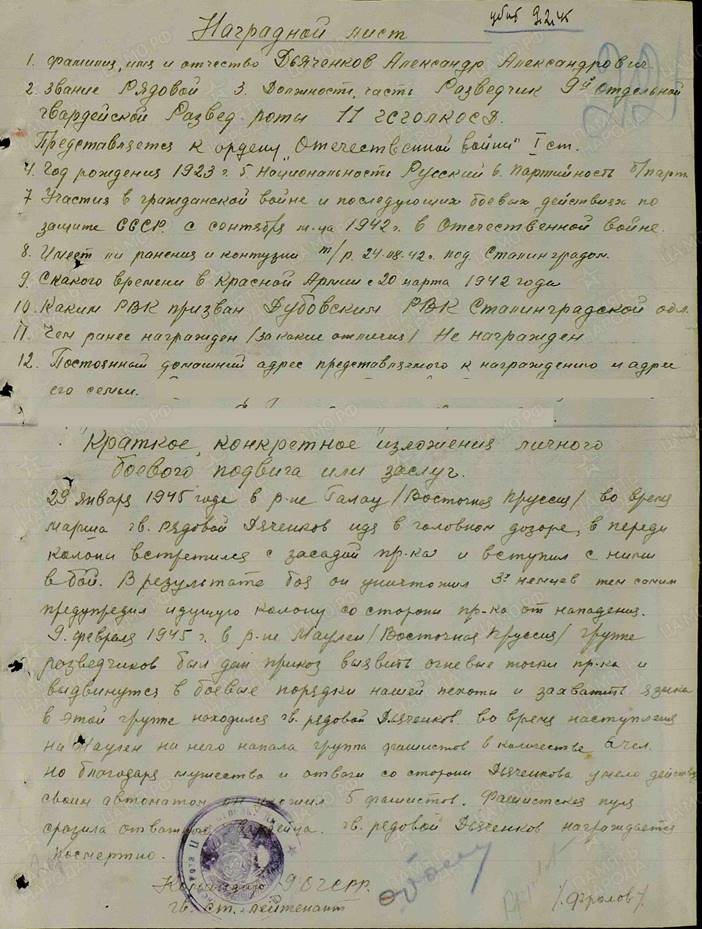 убит 9.2.45
Наградной лист
1. фамилия, имя и отчество Дьяченков Александр Александрович
2. Звание Рядовой 3. Должность, часть Разведчик 9й отдельной
гвардейской Развед. роты 11 гсголкосд.
Представляется к ордену „Отечественной войны" I ст.
4. Год рождения 1923 г. 5 Национальность Русский 6. Партийность б/парт
7 Участия в гражданской войне и последующих боевых действиях по
защите СССР. с сентября м-ца 1942 г. в Отечественной войне.
8. Имеет ли ранения и контузии т/р. 24.08.42 г. под Сталинградом.
9. Скакого времени в Красной Армии с 20 марта 1942 года
10. Каким РВК призван Дубовским РВК Сталинградской обл.
11. Чем ранее награжден /за какие отличия/ Не награжден
12. Постоянный домашний адрес представляемого к награждению и адрес
его семьи.
"Краткое, конкретное изложения личного
боевого подвига или заслуг.
29 января 1945 года в р-не Галау /Восточная Пруссия/ во время
марша гв. рядовой Дяченков идя в головном дозоре, в переди
колоны встретился с засадой пр-ка и вступил с ними
в бой. В результате боя он уничтожил 3х немцев тем самим
предупредил идущую колону со стороны пр-ка от нападения.
9. февраля 1945 г. в р-не Маулен /Восточная Пруссия/ группе
розведчиков был дан приказ вызвить огневые точки пр-ка и
выдвинутся в боевые порядки нашей пехоты и захватить языка
в этой группе находился гв. рядовой Дяченков. во время наступления
на Маулен на него напала группа фашистов в количестве 6 чел.
Но благодаря мужества и отваги со стороны Дьяченкова умело действуя
своим автоматом он 5 фашистов. Фашистская пуля
сразила гвардейца. гв. рядовой Дьяченков награждается
посмертно.
Командир 9 ОГСРР.
гв. ст. лейтенант /Фролов/.